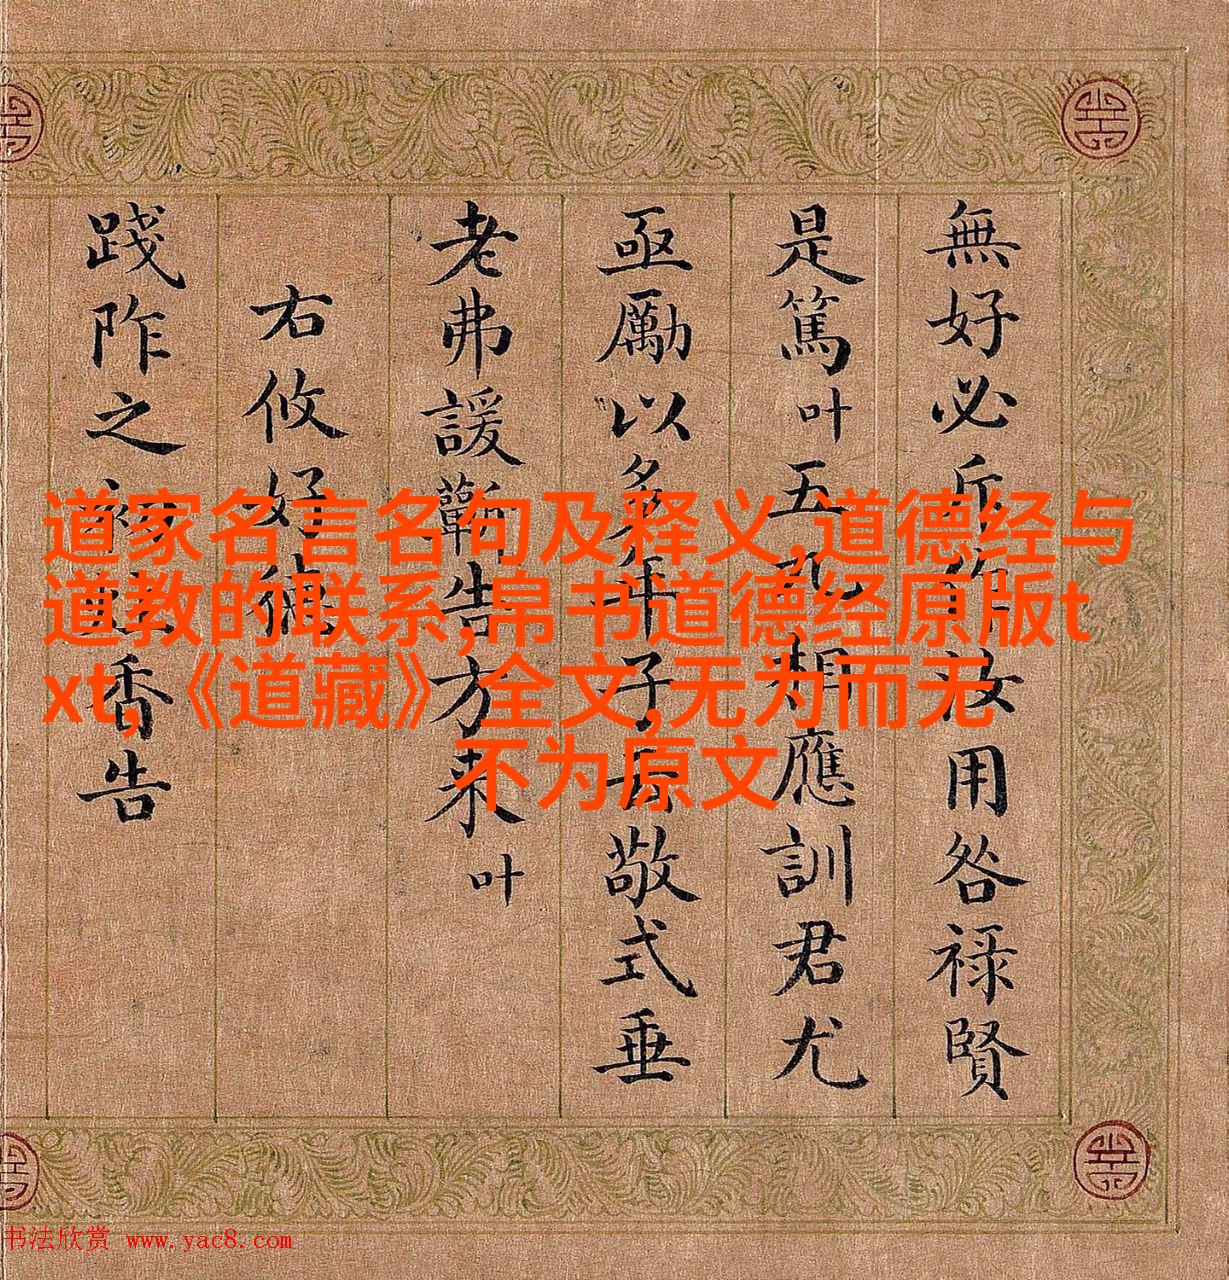 無好必作汝用咎祿賢
是篤叶五相應訓君尤
亟勵以多年敬式垂
老弗諼告方來叶
右攸好德
踐阼之初香告
道家名言名句及释义,道德经与
道教的联系,帛书道德经原版t
xt,《道藏》全文,无为而无
不为原文
书法欣赏 www.yac8.com